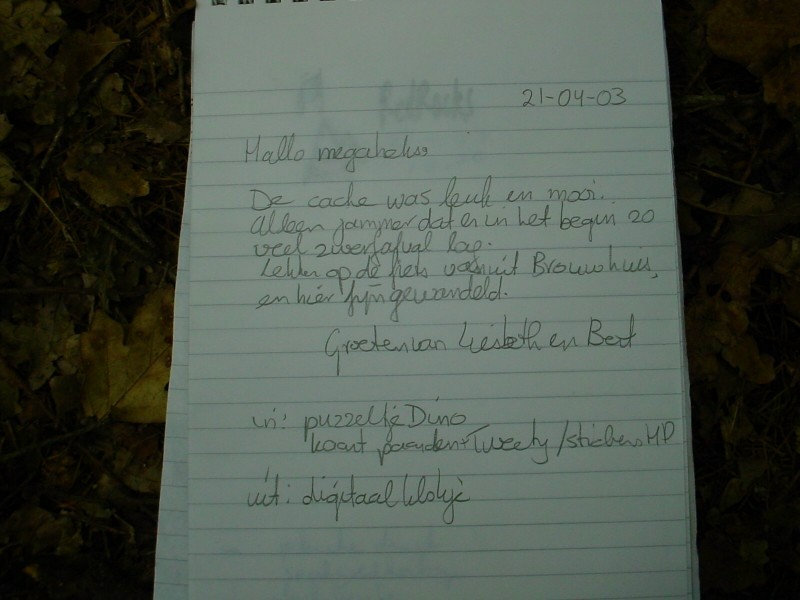 21-04-03
Hallo megaheks,
De cache was leuk en mooi.
Alleen jammer dat er in het begin zo
veel zwerfafval lag.
Lekker op de fiets vanuit Brouwhuis,
en hier fijn gewandeld.
Groeten van Liesbeth en Bert
in: puzzeltje Dino
kaart paarden + Tweety / stickers HP
uit: digitaal klokje